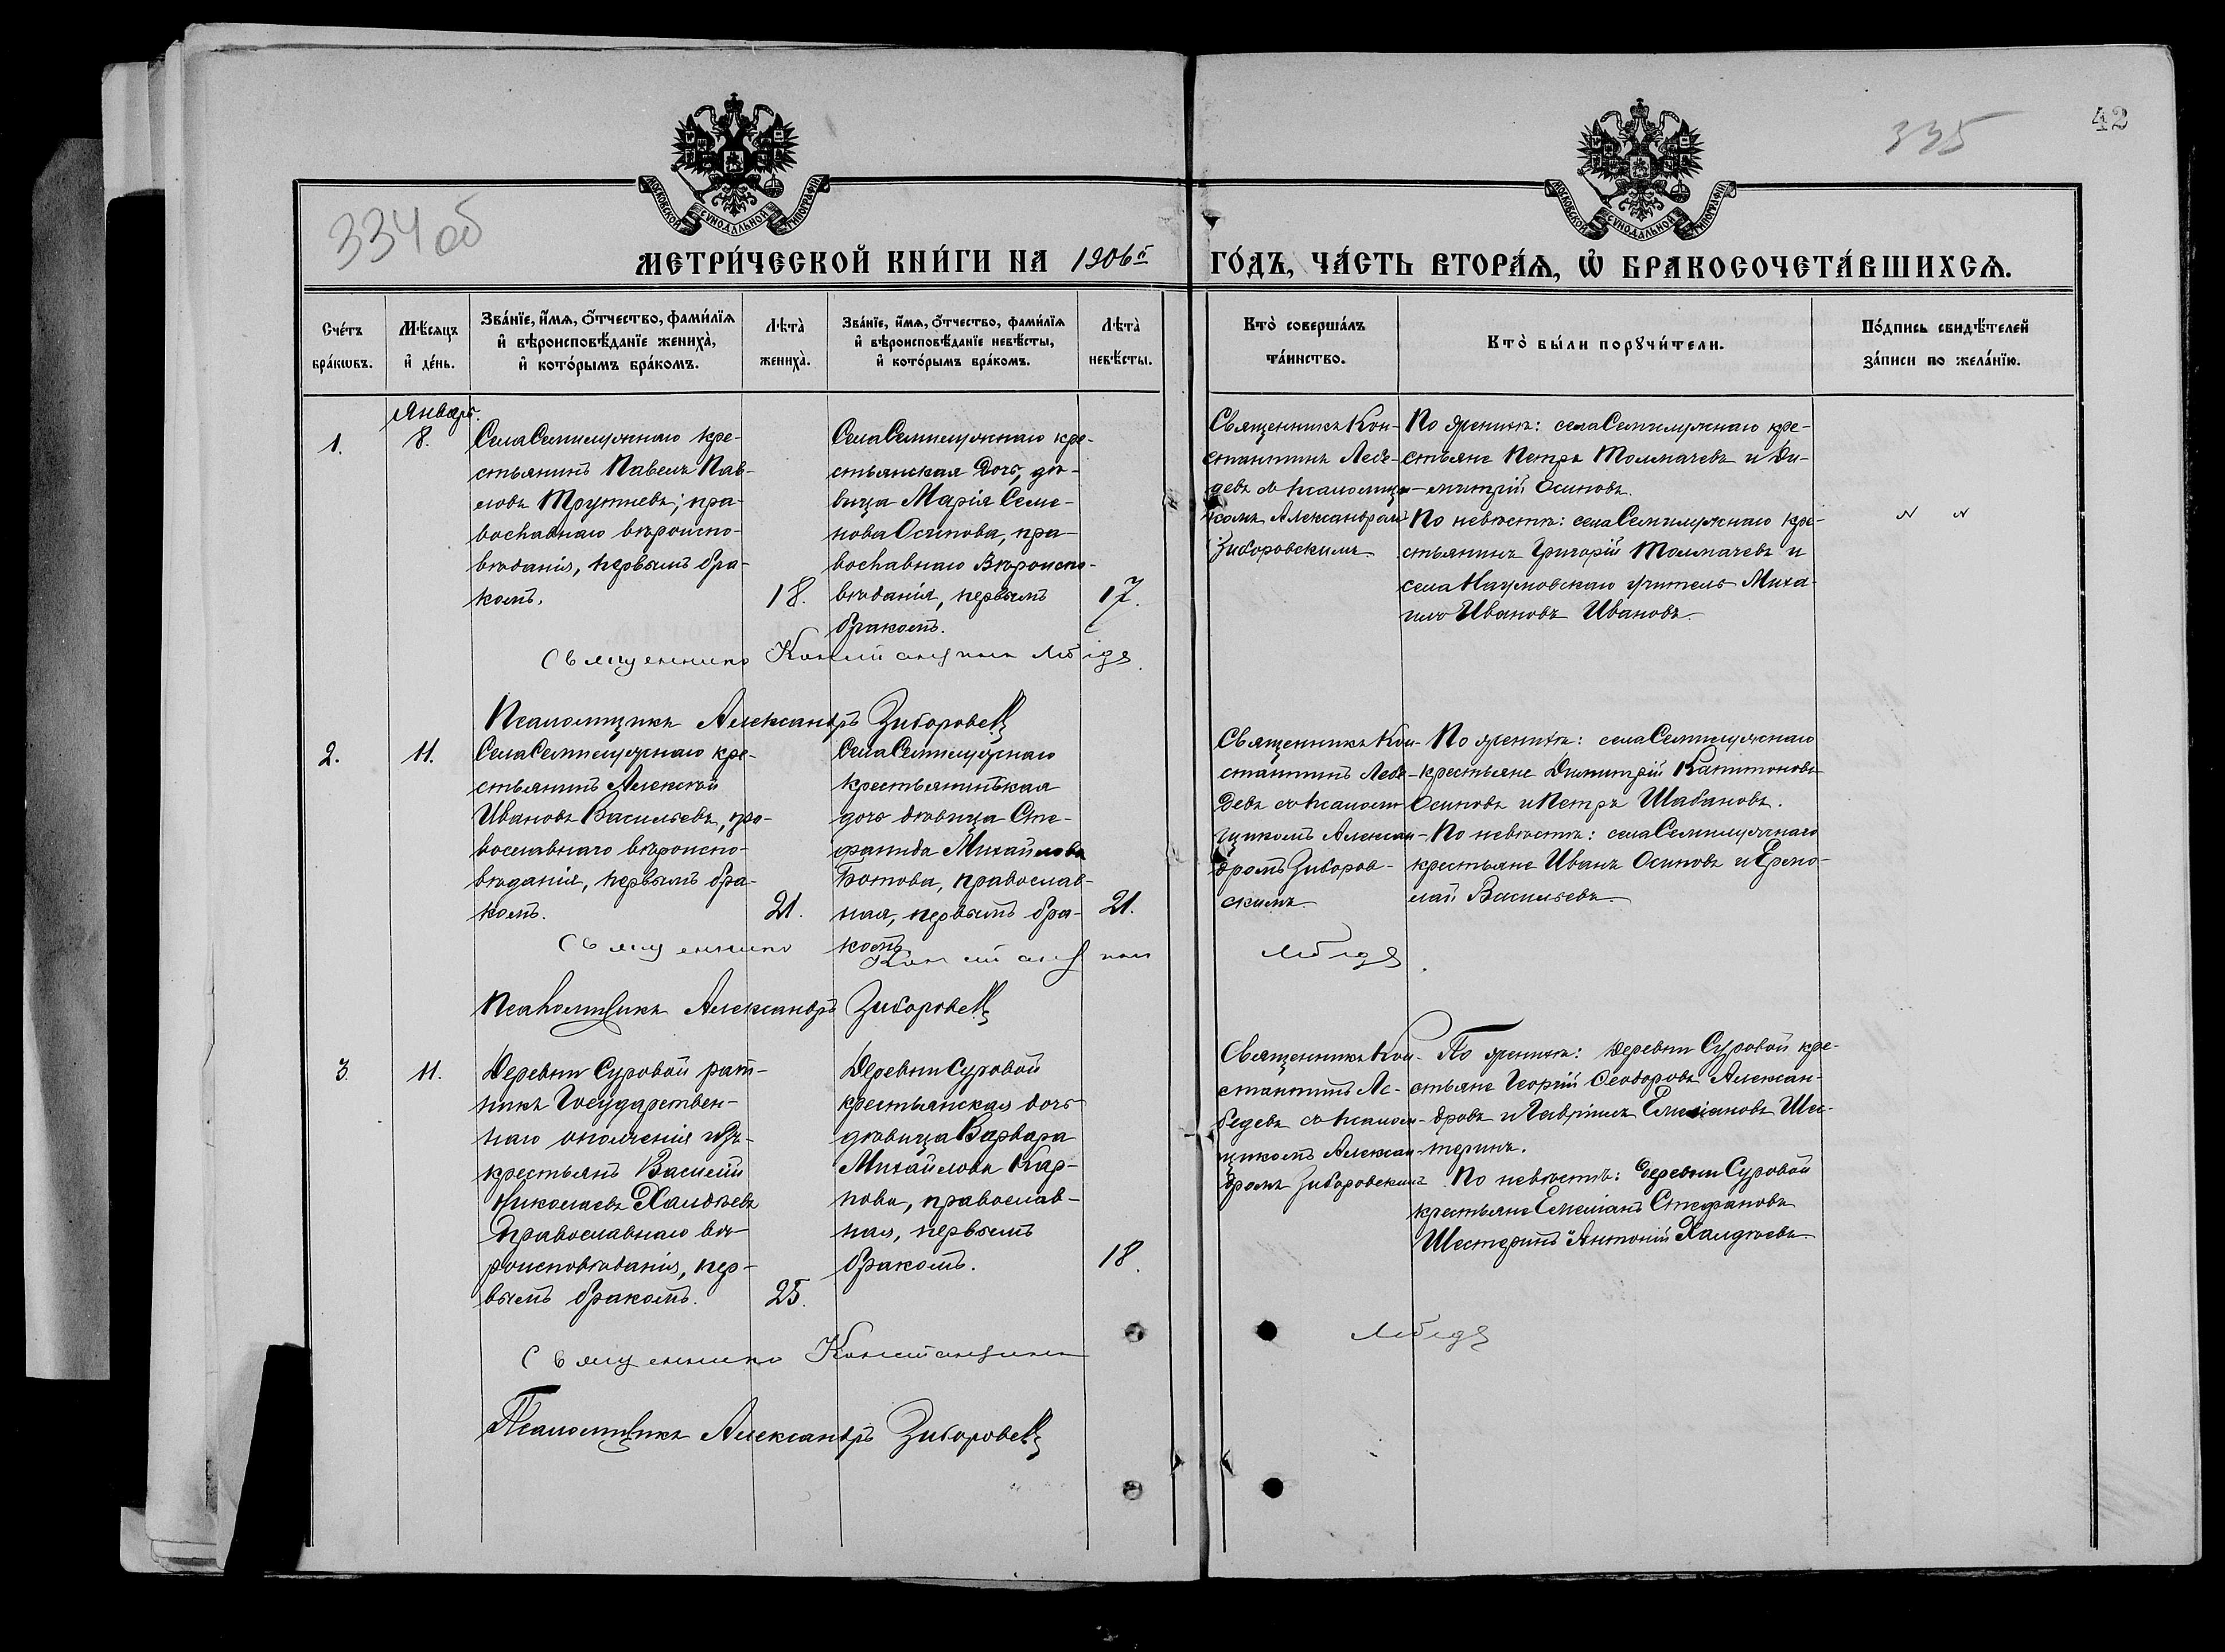 42
335
334 об
МОСКОВСКОЙ СѴНОДАЛЬНОЙ ТИПОГРАФІИ
МОСКОВСКОЙ СѴНОДАЛЬНОЙ ТИПОГРАФІИ
МЕТРИ́ЧЕСКОЙ КНИ́ГИ НА 1906й ГО́ДЪ, ЧА́СТЬ ВТОРА́Ѧ, Ѡ҆ БРАКОСОЧЕТА́ВШИХСѦ.
Сче́тъ
бра́кѡвъ.
Мѣ́сяцъ
и҆ де́нь.
Зва́нїе, и҆́мѧ, ѻ҆́тчество, фами́лїѧ
и҆ вѣроисповѣ́данїе жениха̀,
и҆ кото́рымъ бра́комъ.
Лѣта̀
жениха̀.
Зва́нїе, и҆́мѧ, ѻ҆́тчество, фами́лїѧ
и҆ вѣроисповѣ́данїе невѣ́сты,
и҆ кото́рымъ бра́комъ.
Лѣта̀
невѣ́сты.
Кто̀ соверша́лъ
та́инство.
Кто̀ бы́ли порꙋчи́тели.
По́дпись свидѣ́телей
за́писи по жела́нїю.
Январь.
1.
8.
Села Семилужнаго кре-
стьянинъ Павелъ Пав-
ловъ Трутневъ; пра-
вославнаго вѣроиспо-
вѣданія, первымъ бра-
комъ.
18.
Села Семилужнаго кре-
стьянская дочь, дѣ-
вица Марія Семе-
нова Осипова, пра-
вославнаго вѣроиспо-
вѣданія, первымъ
бракомъ.
17.
Священникъ Кон-
стантинъ Лебе-
девъ съ псаломщи-
комъ Александромъ
Зиборовскимъ
По женихѣ: села Семилужнаго кре-
стьяне Петръ Толмачевъ и Ди-
митрій Осиповъ.
По невѣстѣ: села Семилужнаго кре-
стьянинъ Григорій Толмачевъ и
села Наумовскаго учитель Миха-
илъ Ивановъ Ивановъ.
Священникъ Константинъ Лебеде
Псаломщикъ Александръ Зиборовск
2.
11.
Села Семилужнаго кре-
стьянинъ Алексѣй
Ивановъ Васильевъ, пра-
вославнаго вѣроиспо-
вѣданія, первымъ бра-
комъ.
21.
Села Семилужнаго
крестьянинская
дочь дѣвица Сте-
фанида Михайлова
Ботова, православ-
ная, первымъ бра-
комъ
21.
Священникъ Кон-
стантинъ Лебе-
девъ съ псалом-
щикомъ Алексан-
дромъ Зиборов-
скимъ
По женихѣ: села Семилужнаго
крестьяне Димитрій Капитоновъ
Осиповъ и Петръ Шабановъ.
По невѣстѣ: села Семилужнаго
крестьяне Иванъ Осиповъ и Ермо-
лай Васильевъ
Священникъ Константинъ Лебеде
Псаломщикъ Александръ Зиборовск
3.
11.
Деревни Суровой рат-
никъ Государствен-
наго ополченія изъ
крестьянъ Василій
Николаевъ Халдѣевъ
православнаго вѣ-
роисповѣданія, пер-
вымъ бракомъ.
25.
Деревни Суровой
крестьянская дочь
дѣвица Варвара
Михайлова Кар-
пова, православ-
ная, первымъ
бракомъ.
18.
Священникъ Кон-
стантинъ Ле-
бедевъ съ псалом-
щикомъ Алексан-
дромъ Зиборовскимъ
По женихѣ: деревни Суровой кре-
стьяне Георгій Ѳеодоровъ Алексан-
дровъ и Гавріилъ Емеліановъ Шес-
теринъ.
По невѣстѣ: деревни Суровой
крестьяне Емеліанъ Стефановъ
Шестеринъ и Антоній Халдѣевъ
Священникъ Константинъ Лебеде
Псаломщикъ Александръ Зиборовск